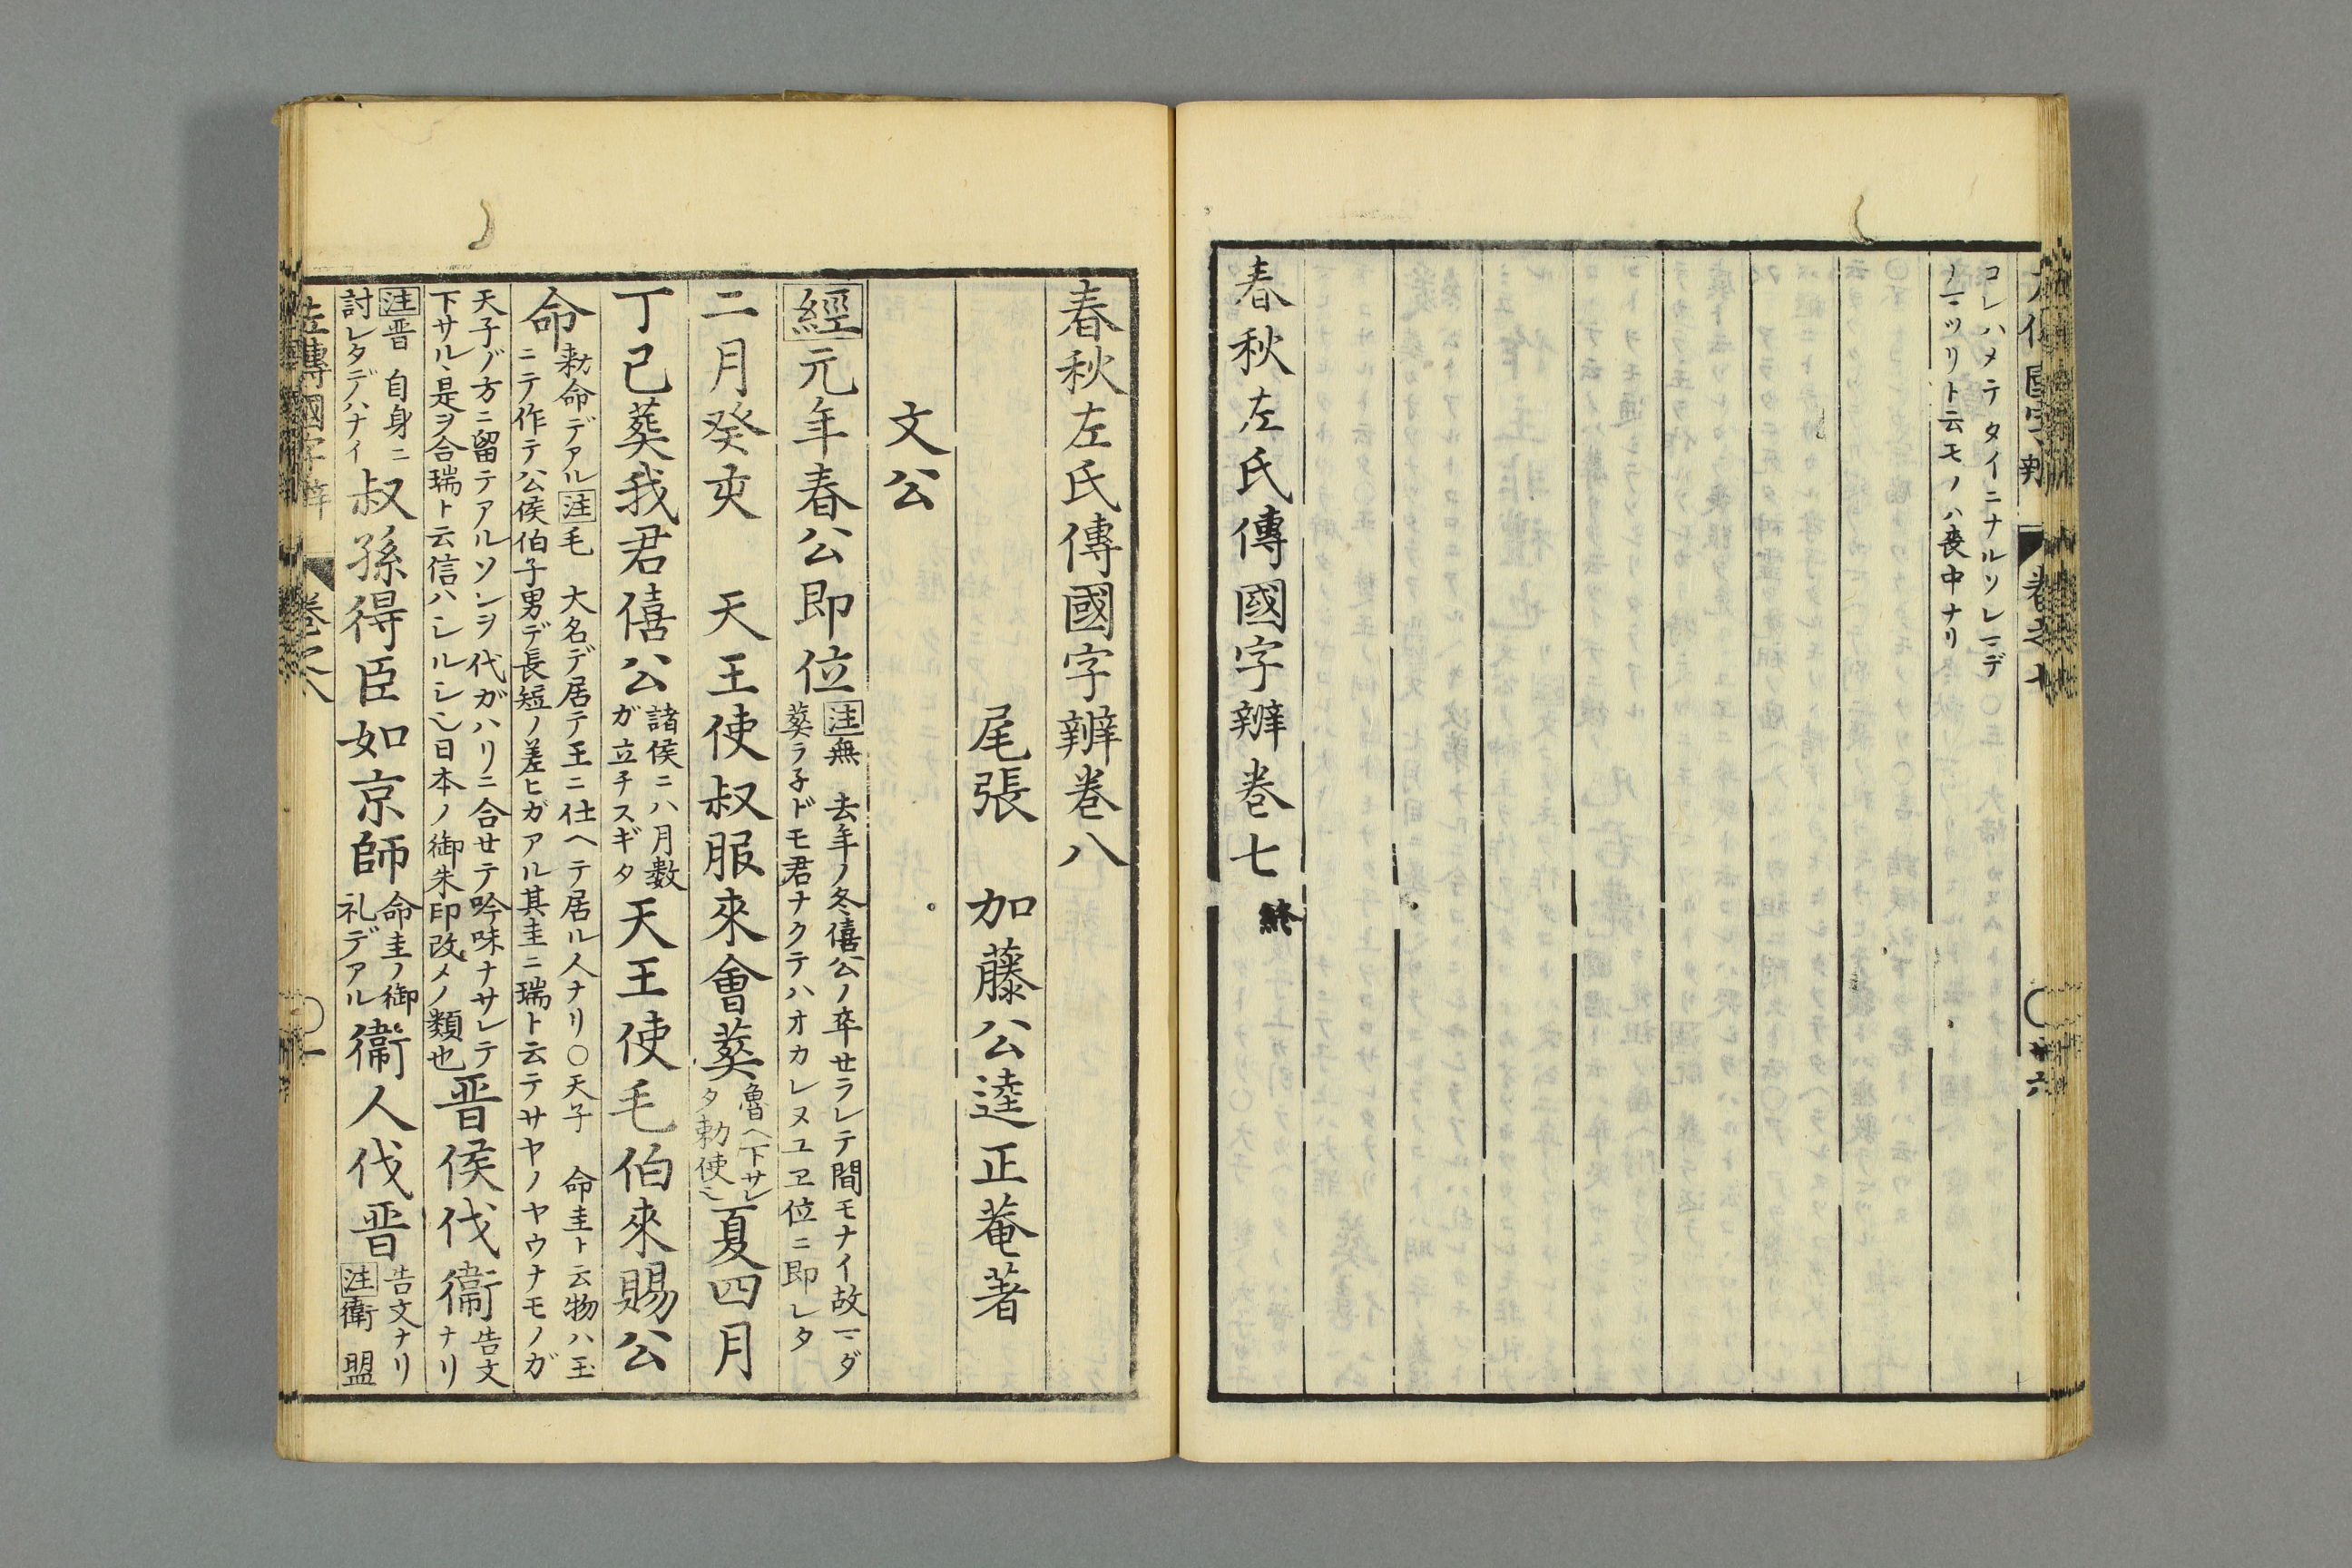 コレハメテタイニナルソレ〓デ
ノ〓ツリト云モノハ喪中ナリ
春秋左氏傳國字辨巻七終
春秋左氏傳國字辨巻八
尾張 加藤公逵正菴著
文公
經元年春公即位
注無 去年ノ冬僖公ノ卒せラレテ間モナイ故〓ダ
葬ラ子ドモ君ナクテハオカレヌユヱ位ニ即レタ
二月癸亥 天王使叔服來會葬
魯ヘ下サレ
タ勅使
夏四月
丁已葬我君僖公
諸侯ニハ月数
ガ立チスギタ
天王使毛伯來賜公
命
勅命デアル注毛 大名デ居テ王ニ仕ヘテ居ル人ナリ〇天子 命圭ト云物ハ玉
ニテ作テ公侯伯子男デ長短ノ差ヒガアル其圭ニ瑞ト云テサヤノヤウナモノガ
天子ノ方ニ留テアルソレヲ代ガハリニ合せテ吟味ナサレテ
下サル是ヲ合瑞ト云信ハシルシ日本ノ御朱印改メノ類也
晋侯伐衞
告文
ナリ
注晋 自身ニ
討レタデハナイ
叔孫得臣如京師
命圭ノ御
礼デアル
衞人伐晋
告文ナリ
注衛 盟
左傳國字辨 巻之八 一